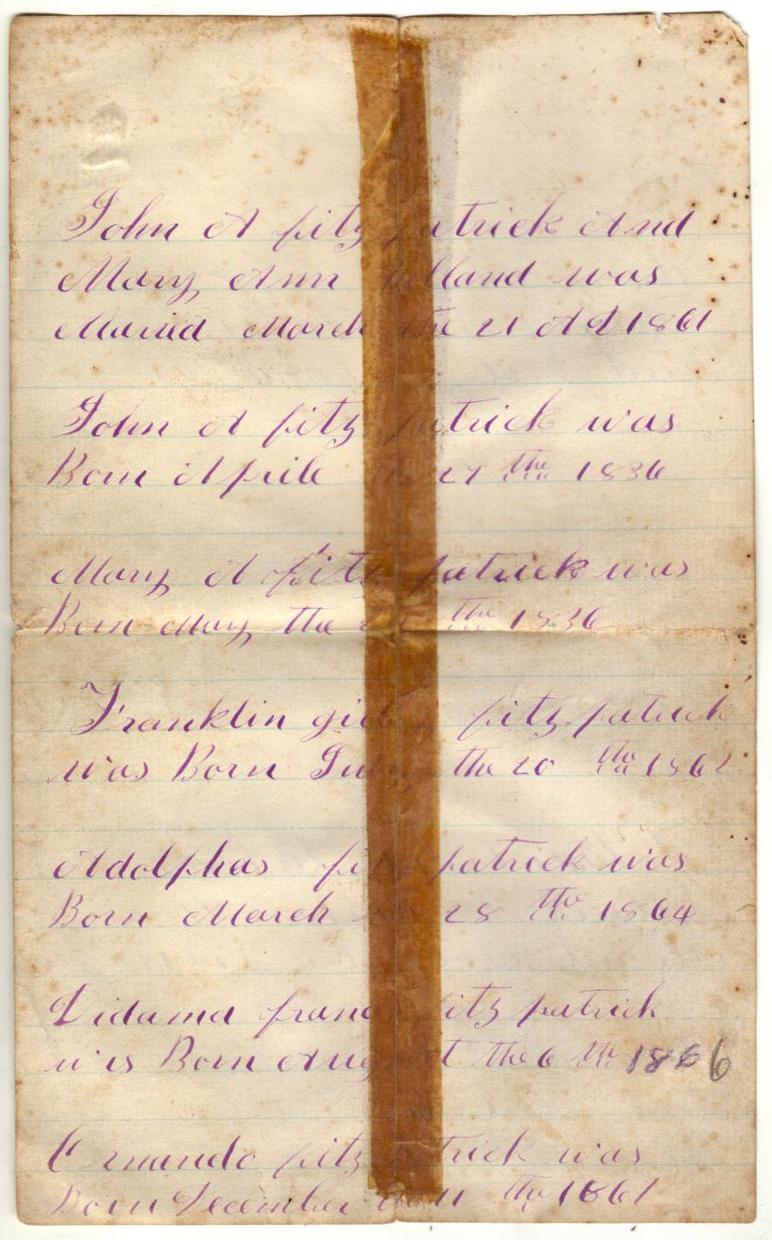 John A fitz patrick And
Mary Ann Holland was
Maried March the 21 AD 1861
John A fitz patrick was
Born Aprile the 27 the 1836
Mary A fitz patrick was
Born May the the 1836
Franklin fitz patrick
was Born the 20 the 1862
Adolphas fitz patrick was
Born March the 28 the 1864
Lidama fitz patrick
was Born August the 6 th 1866
fitz patrick was
Born December the 11 the